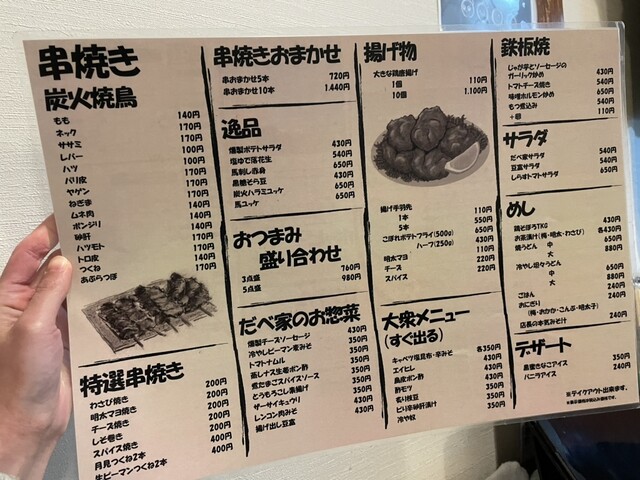 串焼き
炭火焼鳥
もも 140円
ネック 170円
ササミ 170円
レバー 100円
ハツ 100円
バリ皮 170円
ヤゲン 170円
ねぎま 170円
ムネ肉 140円
ボンジリ 140円
砂肝 140円
ハツモト 170円
トロ皮 170円
つくね 140円
あぶらつぼ 170円
特選串焼き
わさび焼き 200円
明太マヨ焼き 200円
チーズ焼き 200円
しそ巻き 200円
スパイス焼き 200円
月見つくね2本 400円
生ピーマンつくね2本 400円
串焼きおまかせ
串おまかせ5本 720円
串おまかせ10本 1.440円
逸品
燻製ポテトサラダ 430円
塩ゆで落花生 540円
馬刺し赤身 650円
黒糖そら豆 430円
炭火ハラミユッケ 650円
馬ユッケ 650円
おつまみ
盛り合わせ
3点盛 760円
5点盛 980円
だべ家のお惣菜
燻製チーズソーセージ 430円
冷やしピーマン麦みそ 350円
トマトナムル 350円
蒸しナス生姜ポン酢 350円
煮たまごスパイスソース 350円
とうもろこし素揚げ 350円
ザーサイキュウリ 430円
レンコン肉みそ 430円
揚げ出し豆富 430円
揚げ物
大きな鶏唐揚げ
1個 110円
10個 1.100円
揚げ手羽先
1本 110円
5本 550円
こぼれポテトフライ(500g) 650円
ハーフ(250g) 430円
明太マヨ 110円
チーズ 220円
スパイス 220円
大衆メニュー
(すぐ出る)
キャベツ塩昆布・辛みそ 各350円
エイヒレ 430円
鳥皮ポン酢 350円
酢モツ 350円
炙り枝豆 350円
ピリ辛砂肝漬け 350円
冷や奴 350円
鉄板焼
じゃが芋とソーセージの
ガーリック炒め 430円
トマトチーズ焼き 540円
味噌ホルモン炒め 650円
もつ煮込み 540円
+卵 110円
サラダ
だべ家サラダ 540円
豆富サラダ 540円
しらすトマトサラダ 650円
めし
鶏そぼろTKG 430円
お茶漬け(梅・明太・わさび) 各430円
焼うどん 中 650円
大 880円
冷やし坦々うどん
中 650円
大 880円
ごはん 240円
おにぎり
(梅・おかか・こんぶ・明太子) 240円
店長の本気みそ汁 240円
デザート
黒蜜きなこアイス 350円
バニラアイス 240円
※テイクアウト出来ます。
※表示価格は税込み価格です。